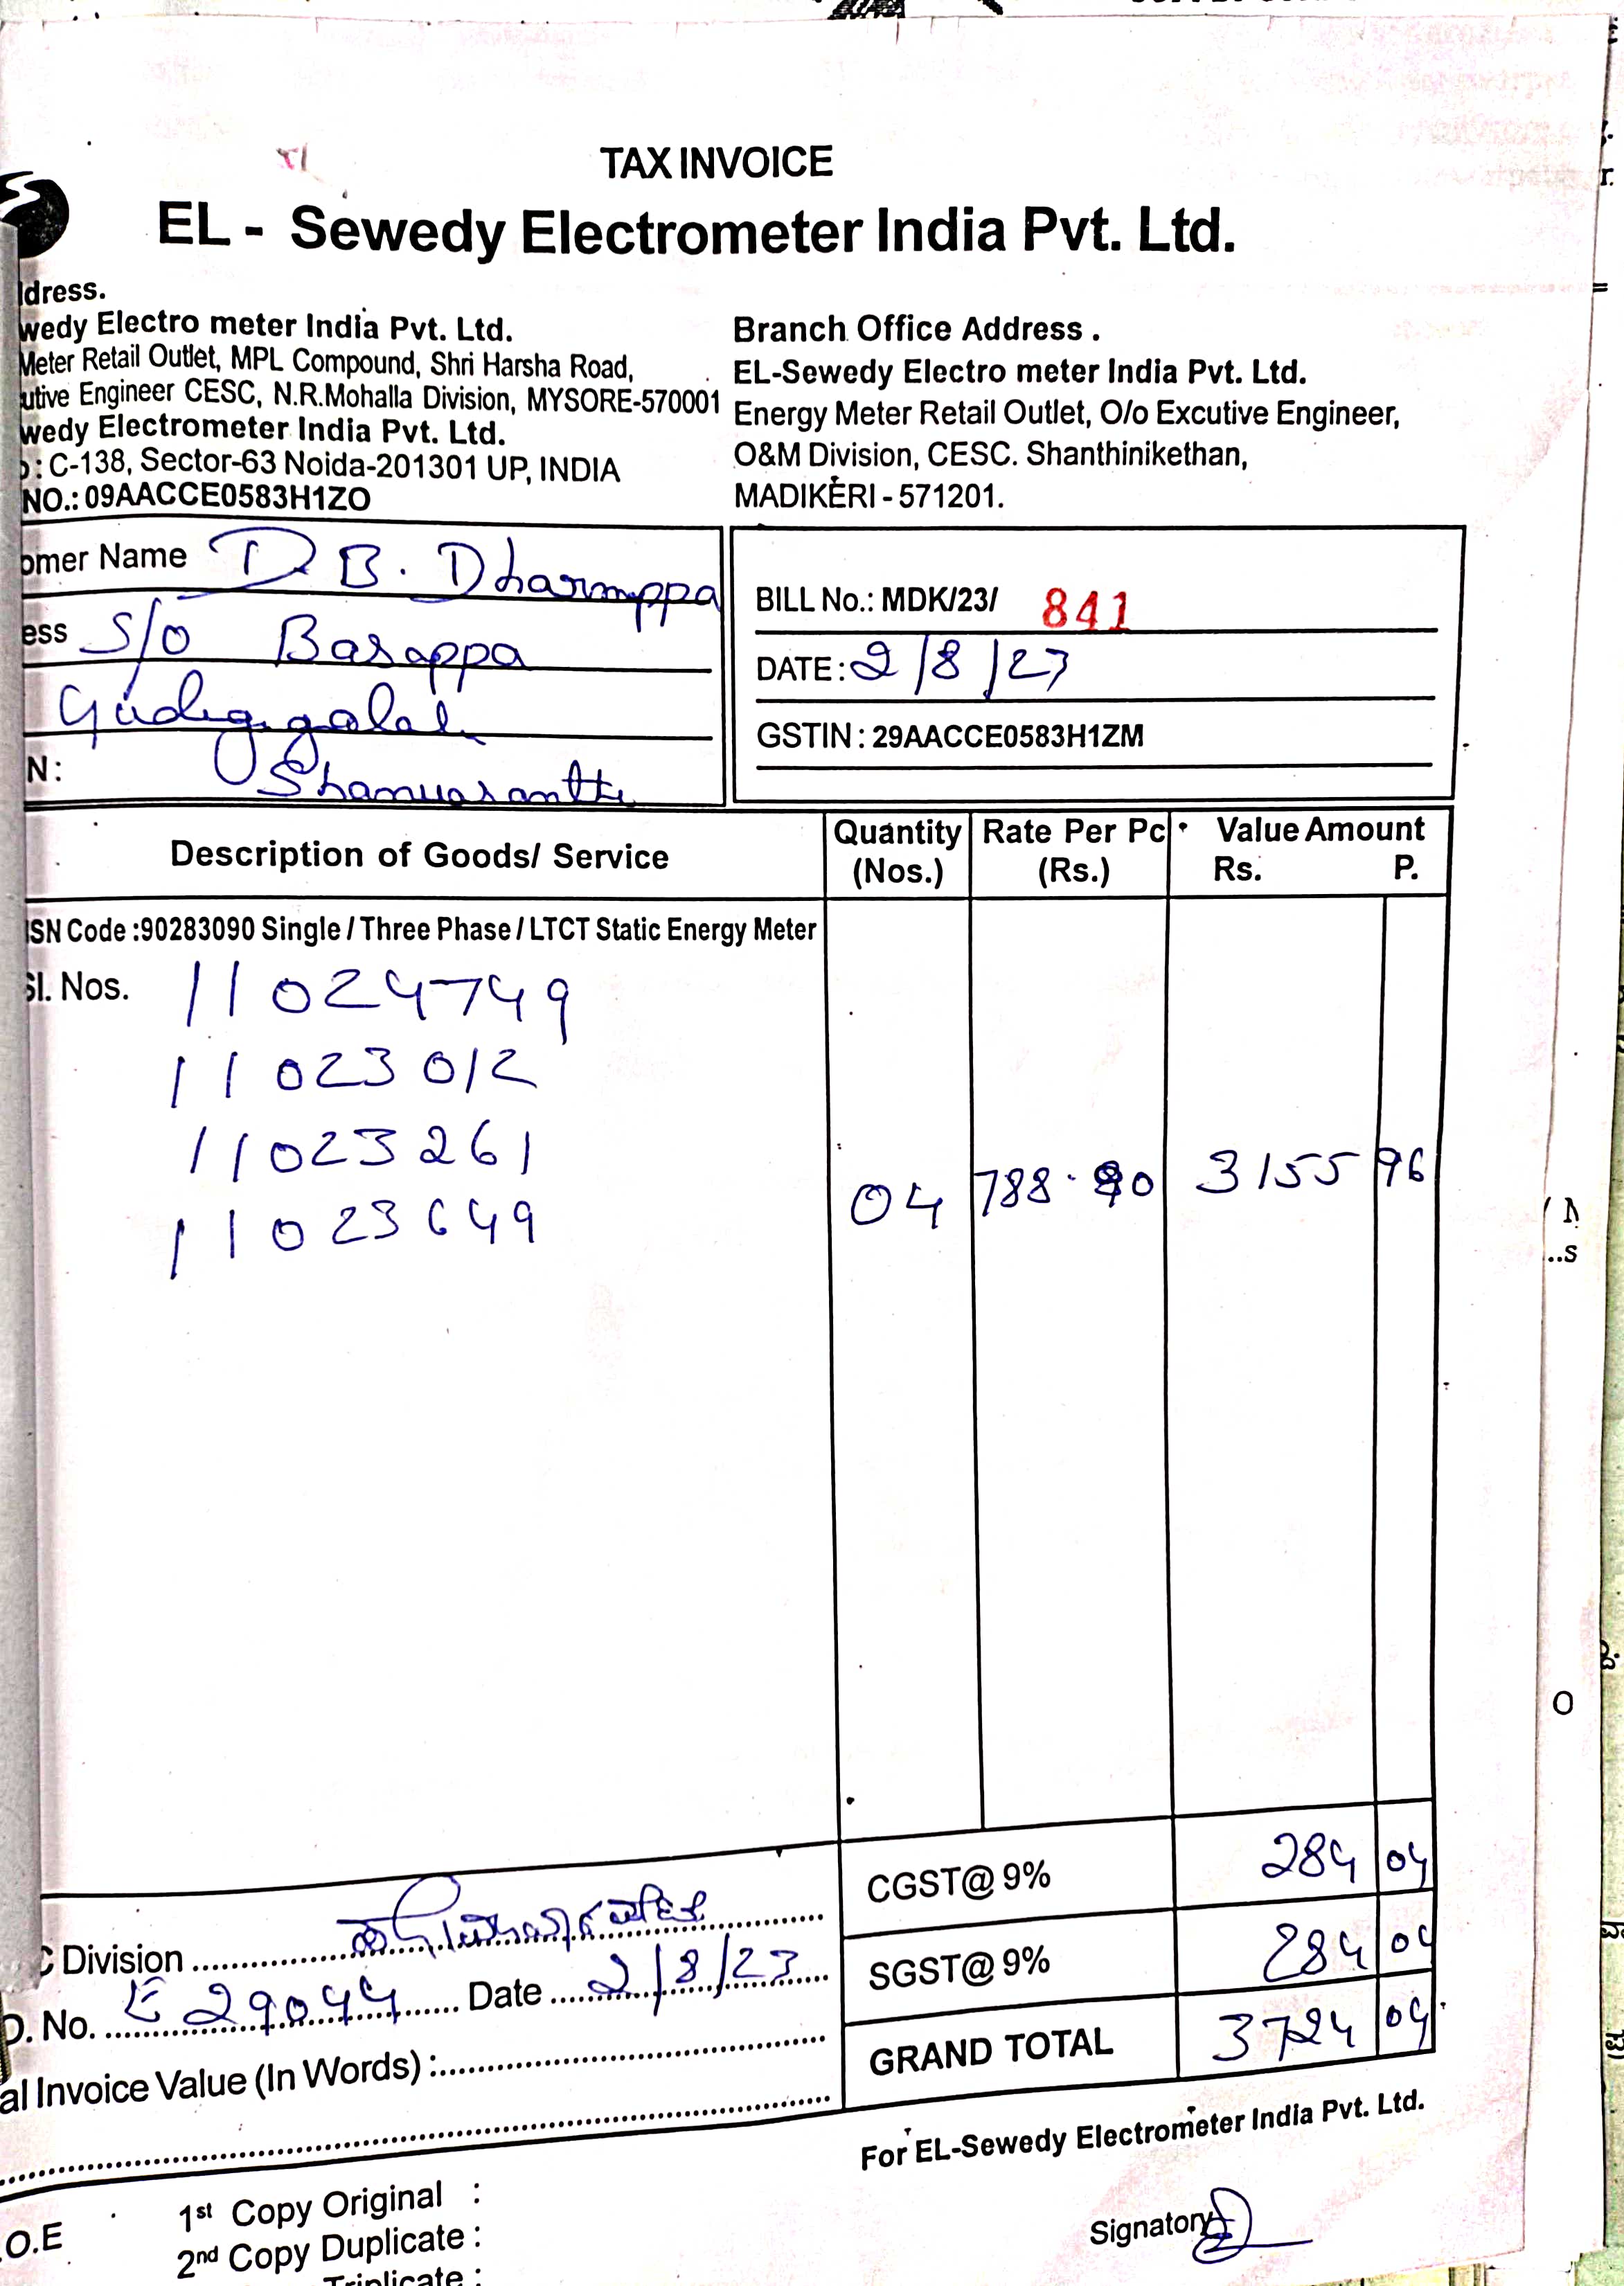 TAX INVOICE
EL - Sewedy Electrometer India Pvt. Ltd.
dress.
wedy Electro meter India Pvt. Ltd.
Meter Retail Outlet, MPL Compound, Shri Harsha Road,
utive Engineer CESC, N.R.Mohalla Division, MYSORE-570001
wedy Electrometer India Pvt. Ltd.
: C-138, Sector-63 Noida-201301 UP, INDIA
NO.: 09AACCE0583H1ZO
Branch Office Address .
EL-Sewedy Electro meter India Pvt. Ltd.
Energy Meter Retail Outlet, O/o Excutive Engineer,
O&M Division, CESC. Shanthinikethan,
MADIKERI - 571201.
omer Name D B. Dharmppa
ess S/o Basappa
N:
BILL No.: MDK/23/ 841
DATE: 2/8/23
GSTIN: 29AACCE0583H1ZM
Description of Goods/ Service
Quantity (Nos.)
Rate Per Pc (Rs.)
Value Amount
Rs. P.
SN Code :90283090 Single / Three Phase / LTCT Static Energy Meter
Sl. Nos. 11024749
11023012
11023261
11023649
04 788. 3155 96
CGST@ 9% 284 04
SGST@ 9% 284 04
GRAND TOTAL 3724 04
C Division
D. No. E 29044 Date 2/8/23
al Invoice Value (In Words) :
For EL-Sewedy Electrometer India Pvt. Ltd.
.O.E
1st Copy Original :
2nd Copy Duplicate :
Triplicate :
Signatory